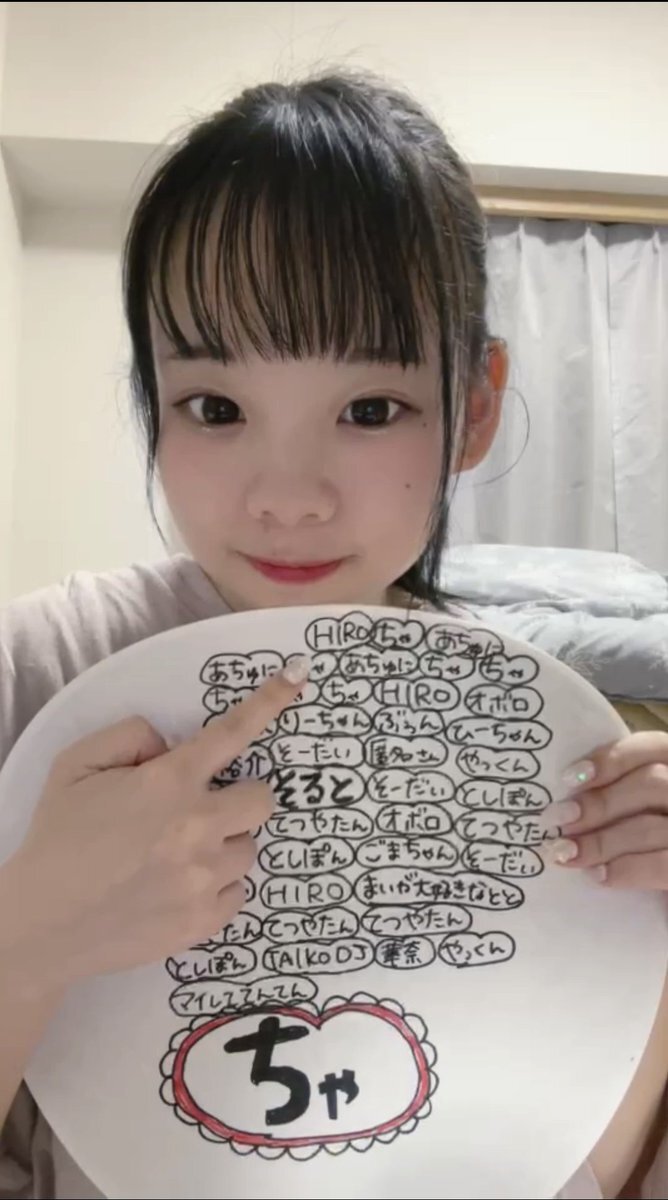 HIRO ちゃ あちゅに
あちゅに ゃ あちゅに ちゃ ちゃ
ちゃ ちゃ HIRO オボロ
りーちゃん ぶぅん ひーちゃん
裕介 そーだい 匿名さん やっくん
そると そーだい としぽん
てつやたん オボロ てつやたん
としぽん ごまちゃん そーだい
HIRO まいが大好きなとと
たん てつやたん てつやたん
としぽん TAIKODJ 華奈 やっくん
マイしててんてん
ちゃ